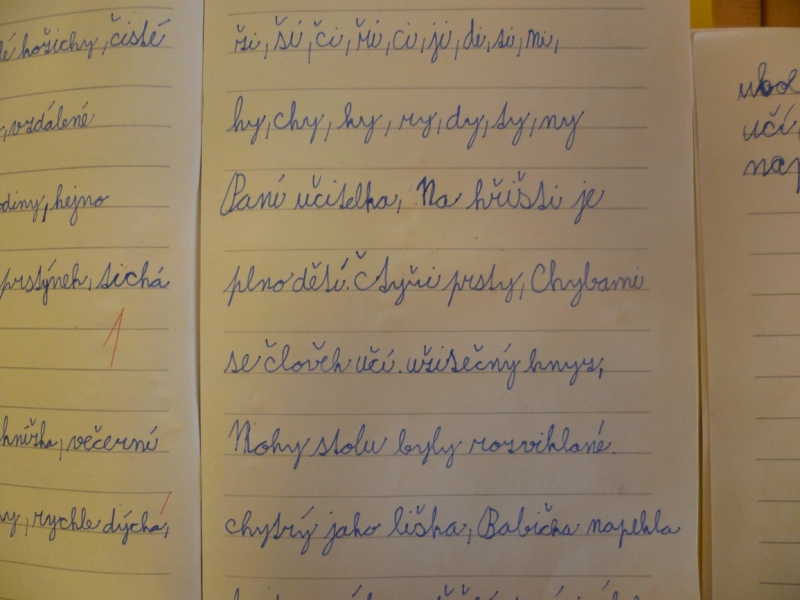 kožichy, čisté
vzdálené
hejno
prstýnek, tichá
1
knížka, večerní
rychle dýchá,
ži, ší, či, ři, ci, ji, di, ti, ni,
hy, chy, ky, ry, dy, ty, ny
Paní učitelka, Na hřišti je
plno dětí. Čtyři prsty, Chybami
se člověk učí. užitečný hmyz,
Nohy stolu byly rozviklané.
chytrý jako liška, Babička napekla
učí
nap